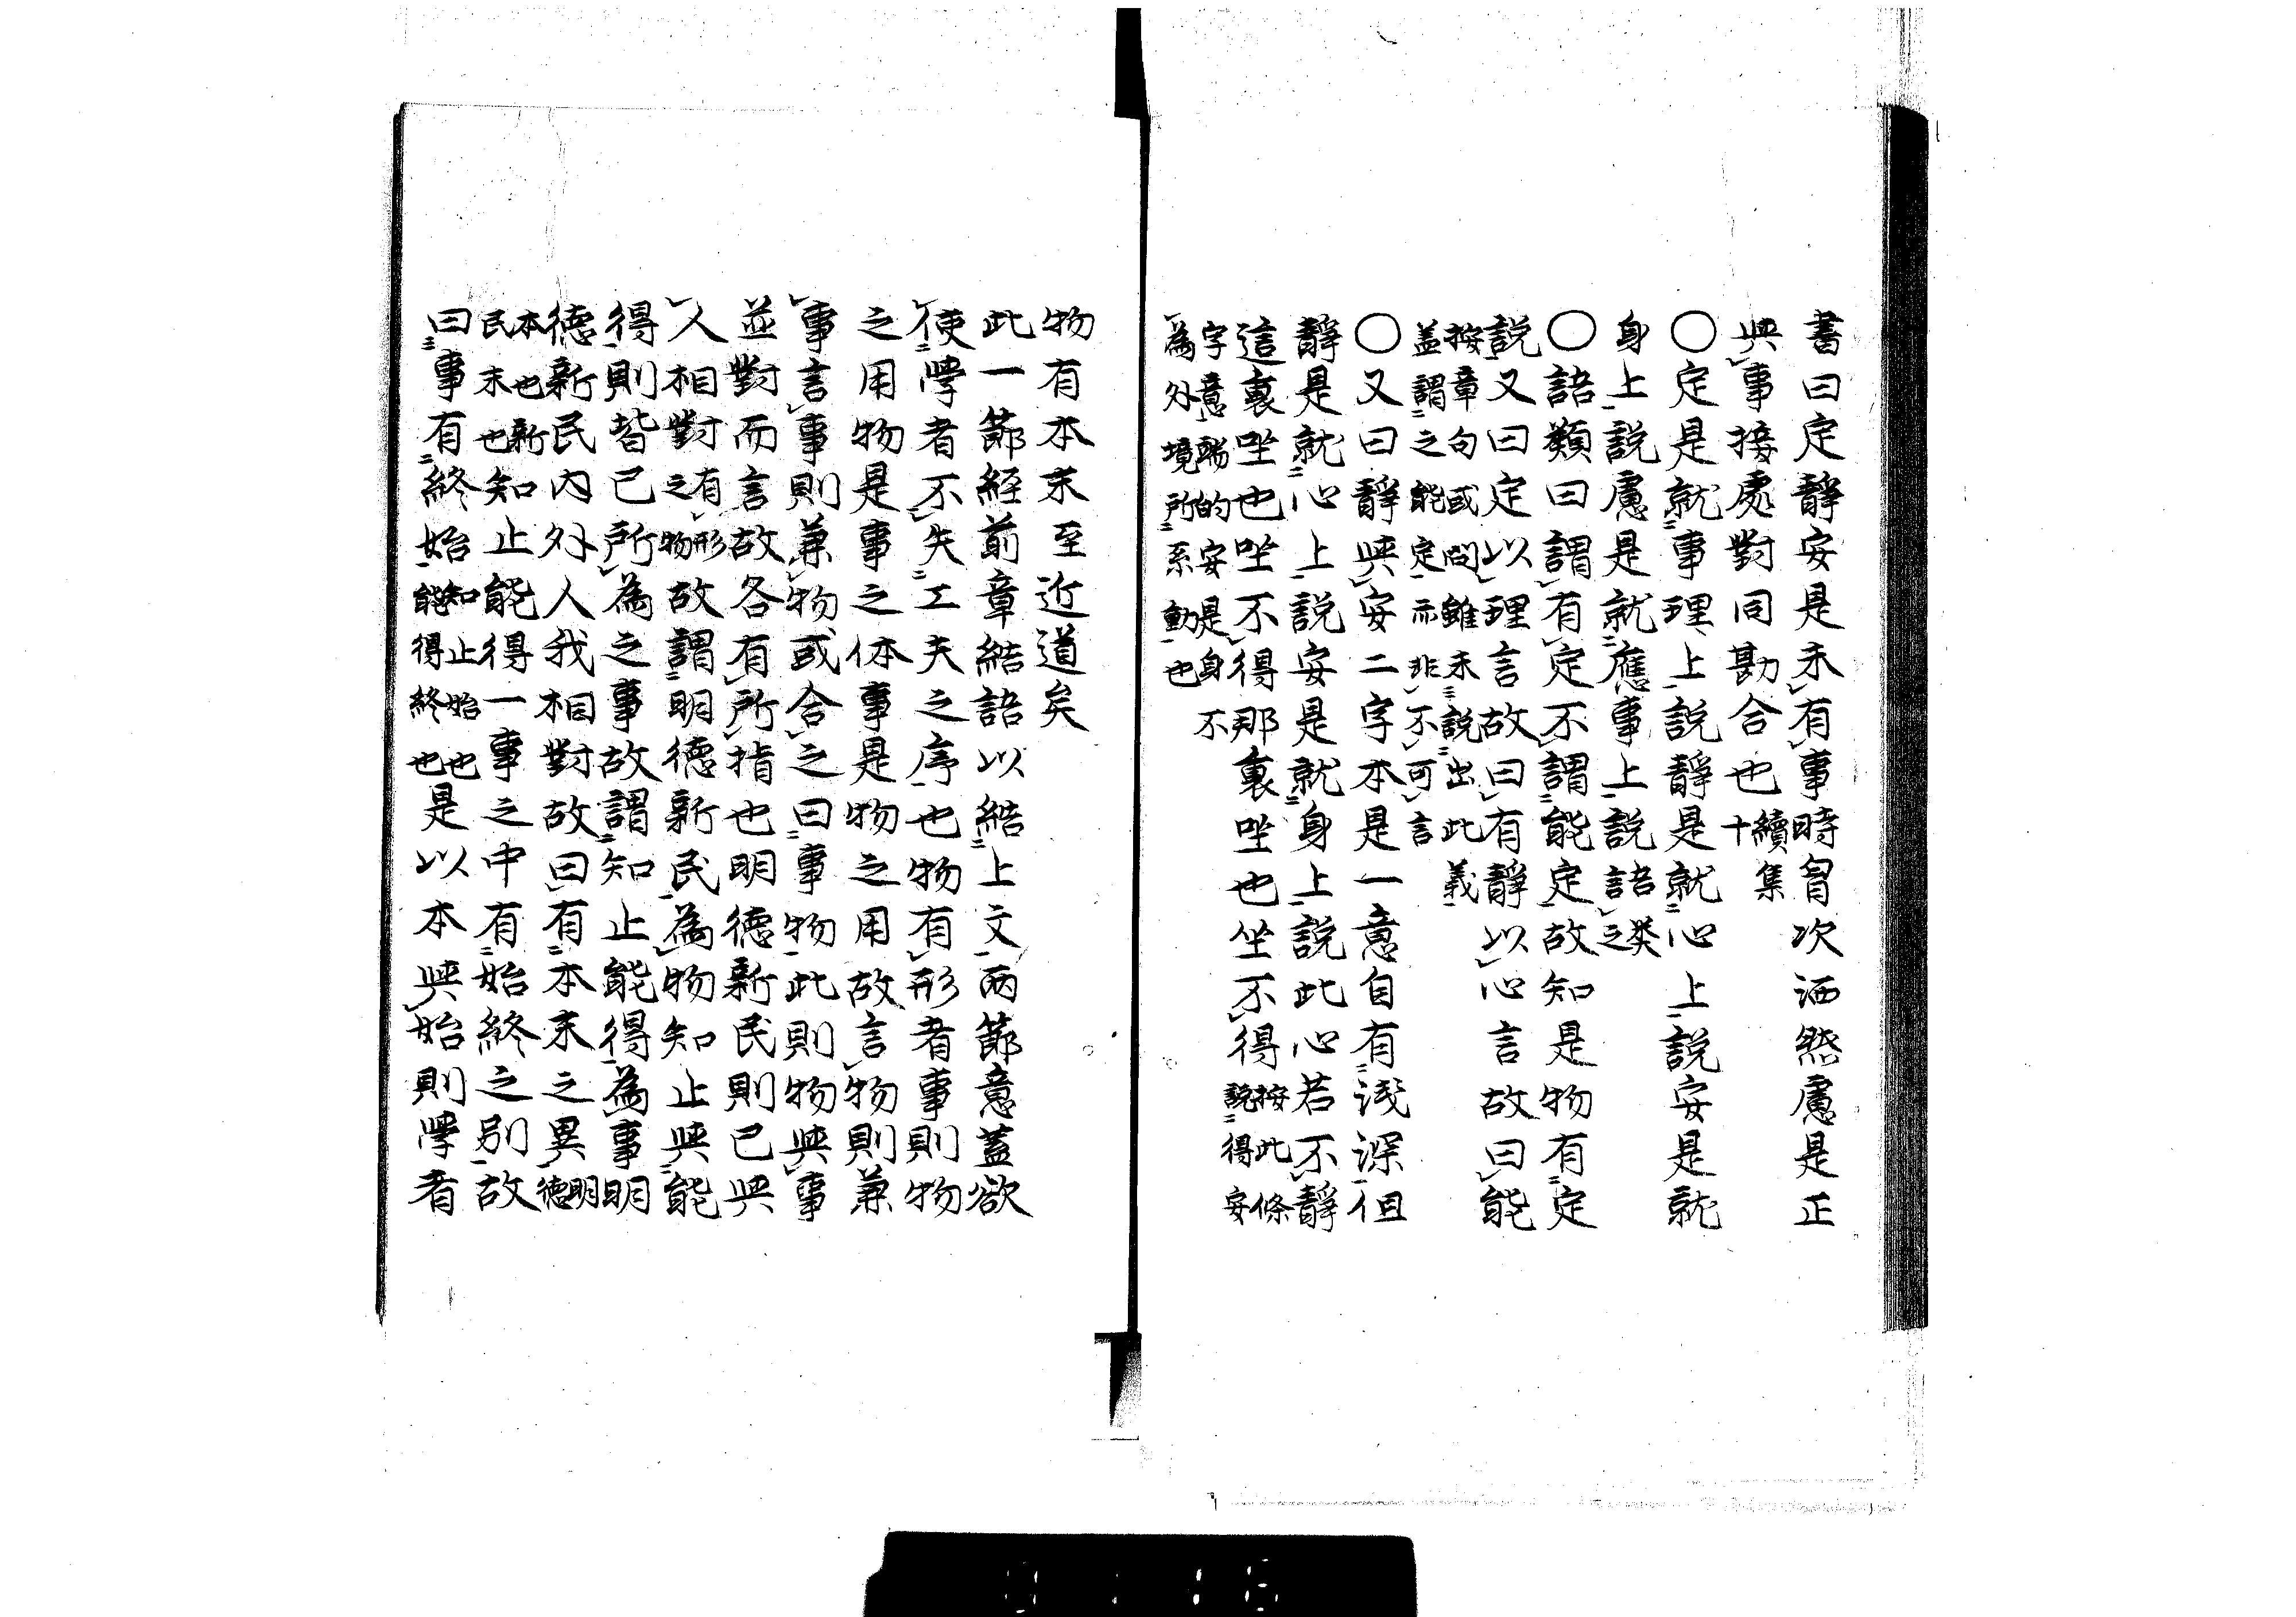 書曰定靜安是未有事時胷次洒然慮是正
與事接處對同勘合也續集十
○定是就事理上說靜是就心上說安是就
身上說慮是就應事上說語類之
○語類曰謂有定不謂能定故知是物有定
說又曰定以理言故曰有靜以心言故曰能
按章句或問雖未說出此義
蓋謂之能定亦非不可言
○又曰靜與安二字本是一意自有淺深但
靜是就心上說安是就身上說此心若不靜
這裏坐也坐不得那裏坐也坐不得按此條說得安
字意端的安是身不
為外境所系動也
物有本末至近道矣
此一節經前章結語以結上文兩節意蓋欲
使學者不失工夫之序也物有形者事則物
之用物是事之体事是物之用故言物則兼
事言事則兼物或合之曰事物此則物與事
並對而言故各有所指也明德新民則己與
人相對有形之物物故謂明德新民為物知止與能
得則皆己所為之事故謂知止能得為事明
德新民內外人我相對故曰有本末之異明德
本也新民末也知止能得一事之中有始終之別故
曰事有終始知止始也能得終也是以本與始則學者